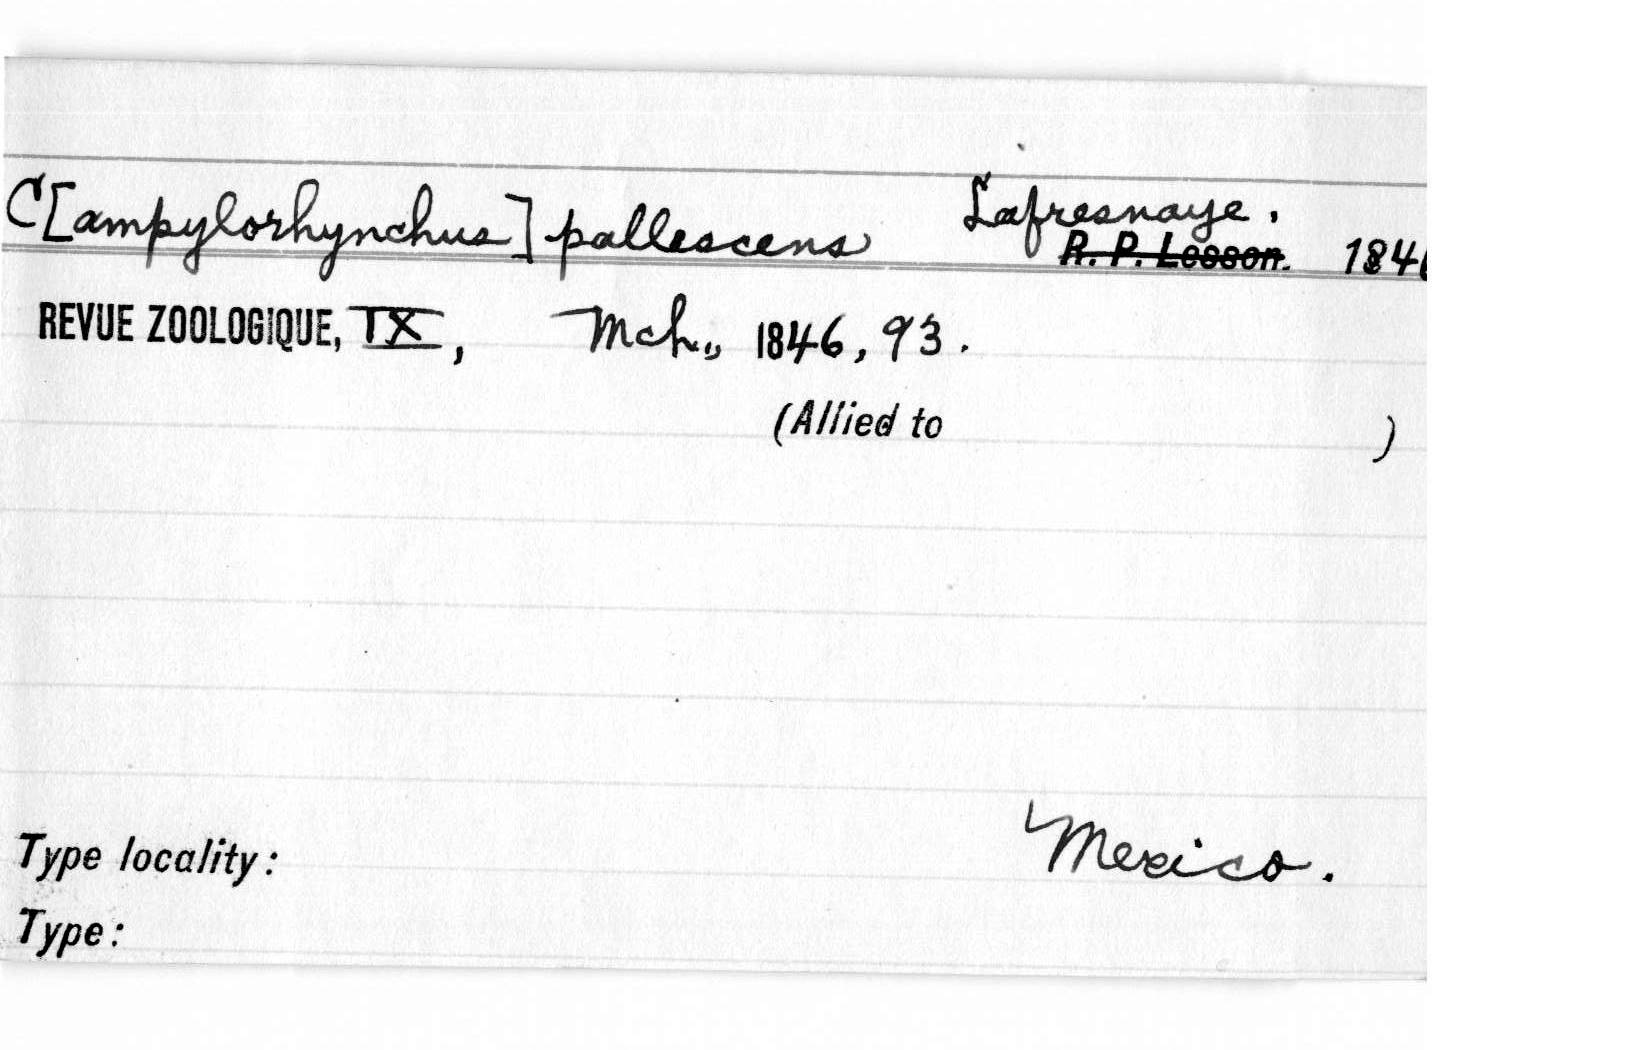 C[ampylorhynchus] pallescens Lafresnaye.
R. P. Lesson. 184
REVUE ZOOLOGIQUE, IX, Mch., 1846, 93.
(Allied to )
Type locality: Mexico.
Type: